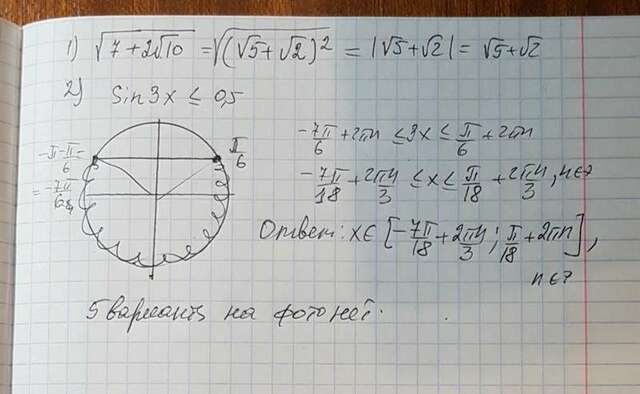 1) √(7+2√10) = √((√5+√2)²) = |√5+√2| = √5+√2
2) Sin 3x ≤ 0,5
-π-π/6=
=-7π/6
π/6
-7π/6+2πn ≤ 3x ≤ π/6+2πn
-7π/18+2πn/3 ≤ x ≤ π/18+2πn/3, n∈Z
Ответ: x∈[-7π/18+2πn/3; π/18+2πn],
n∈Z
5 варианта на фото нет.